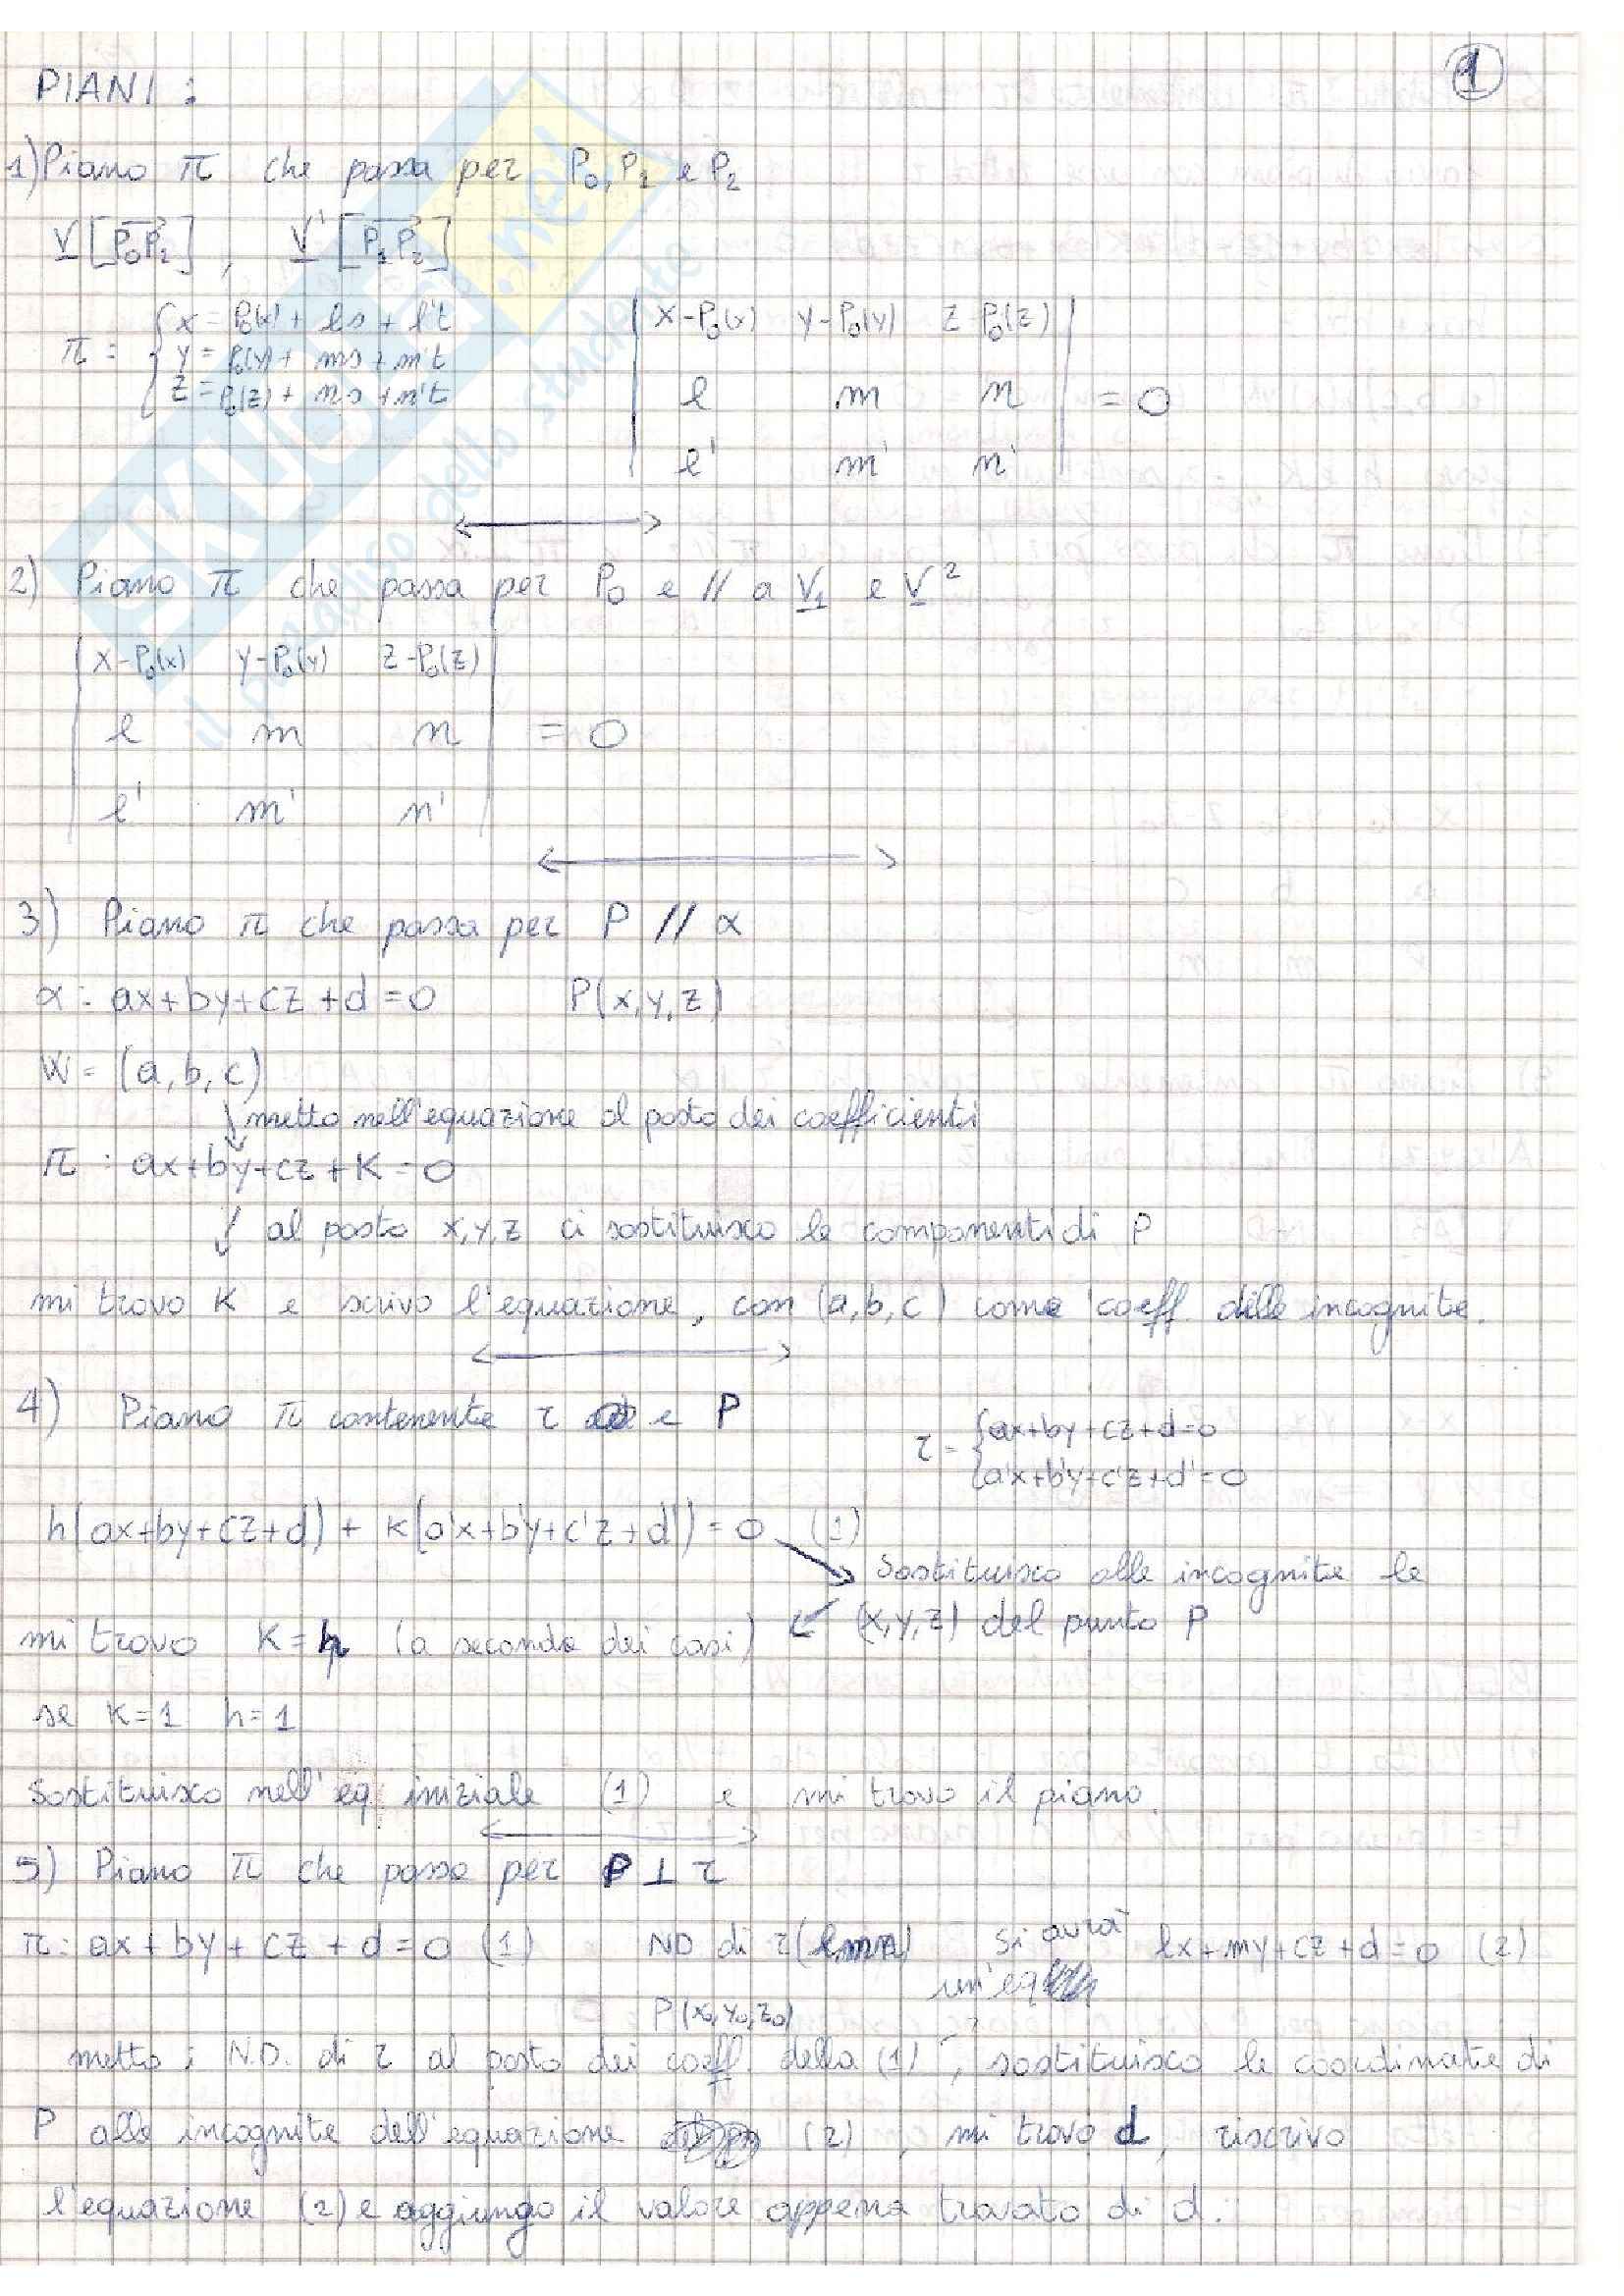 1
PIANI :
1) Piano π che passa per P₀, P₁ e P₂
V [P₀P₂] , V' [P₁P₂]
π : { x = P₀(x) + ls + l't
y = P₀(y) + ms + m't
z = P₀(z) + ns + n't
| x-P₀(x) y-P₀(y) z-P₀(z) |
l m n = 0
l' m' n'
2) Piano π che passa per P₀ e // a V₁ e V²
| x-P₀(x) y-P₀(y) z-P₀(z) |
l m n = 0
l' m' n'
3) Piano π che passa per P // α
α : ax+by+cz+d=0 P(x,y,z)
W = (a,b,c)
metto nell'equazione al posto dei coefficienti
π : ax+by+cz+K=0
al posto x,y,z ci sostituisco le componenti di P
mi trovo K e scrivo l'equazione, con (a,b,c) come coeff. delle incognite.
4) Piano π contenente r e P
r = { ax+by+cz+d=0
a'x+b'y+c'z+d'=0
h(ax+by+cz+d) + k(a'x+b'y+c'z+d') = 0 (1)
Sostituisco alle incognite le
(x,y,z) del punto P
mi trovo K=h (a seconda dei casi)
se K=1 h=1
Sostituisco nell'eq. iniziale (1) e mi trovo il piano.
5) Piano π che passa per P ⊥ r
π: ax+by+cz+d=0 (1) ND di r(lmn) Si avrà lx+my+cz+d=0 (2)
un'eq
P(x₀,y₀,z₀)
metto i N.D. di r al posto dei coeff. della (1), sostituisco le coordinate di
P alle incognite dell'equazione (2), mi trovo d, riscrivo
l'equazione (2) e aggiungo il valore appena trovato di d.
SKUOLA.net
il paradiso dello studente